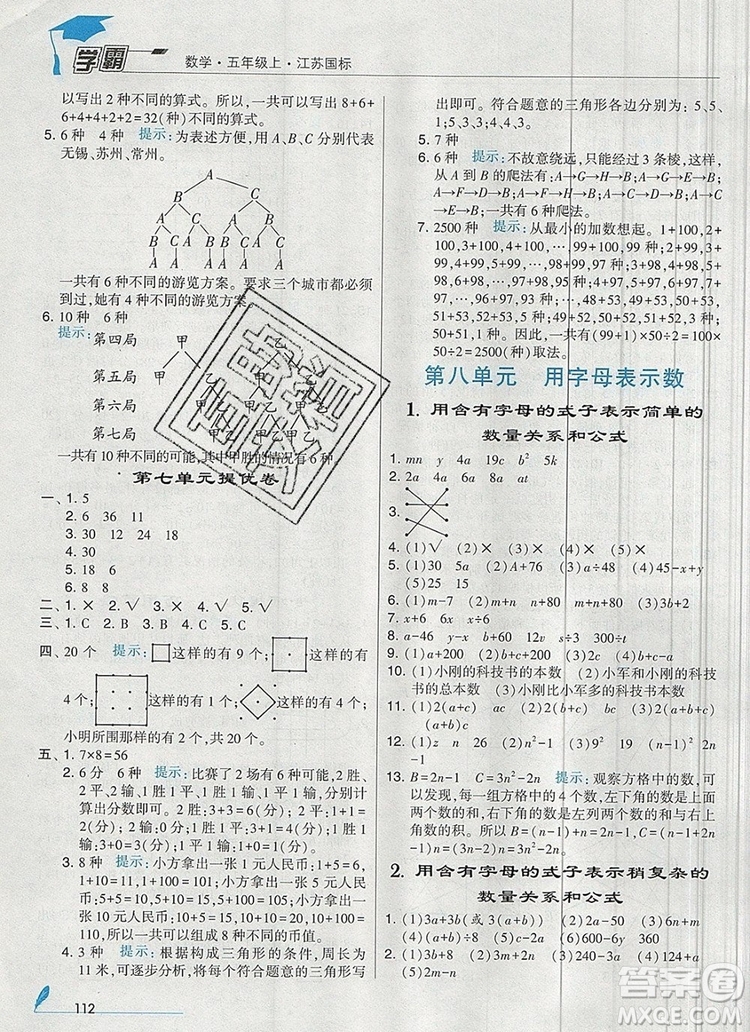 学霸
数学·五年级上·江苏国标
以写出 2 种不同的算式。所以,一共可以写出 8+6+
6+4+4+2+2=32(种)不同的算式。
5. 6 种 4 种 提示:为表述方便,用 A、B、C 分别代表
无锡、苏州、常州。
A
B C
A C A B
B C A B A C B C
A A
一共有 6 种不同的游览方案。要求三个城市都必须
到过,她有 4 种不同的游览方案。
6. 10 种 6 种
提示:
第四局 甲
第五局 甲 乙
第六局
第七局
一共有 10 种不同的可能,其中甲胜的情况有 6 种
第七单元提优卷
一、1. 5
2. 6 36 11
3. 30 12 24 18
4. 30
5. 18 6
6. 8 8
二、1. × 2. × 3. × 4. √ 5. √
三、1. C 2. B 3. A 4. B 5. C
四、20 个 提示:这样的有 9 个;这样的有
4 个;这样的有 1 个;这样的有 4 个;
这样的有 2 个。
小明所围那样的有 2 个,共 20 个。
五、1. 7×8=56
2. 6 分 4 种 提示:比赛了 2 场有 6 种可能,2 胜、
2 平、2 输、1 胜 1 平、1 胜 1 输、1 平 1 输,分别计
算出分数即可。2 胜:3+3=6(分);2 平:1+1=
2(分);2 输:0分;1 胜 1 平:3+1=4(分);1 胜 1
输:3+0=3(分);1 平 1 输:1+0=1(分)。
3. 8 种 提示:小方拿出一张 1 元人民币:1+5=6,
1+10=11,1+50=51,1+100=101;小方拿出一
张 10 元人民币:10+5=15,10+10=20,10+50=
60,10+100=110。所以一共可以组成 8 种不同的币值。
4. 3 种 提示:根据构成三角形的条件,周长为
11 米,可逐步分析,将每个符合题意的三角形写
出即可。符合题意的三角形各边分别为:5、5、
1;5、3、3;5、4、2;4、4、3。
5. 7 种
6. 6 种 提示:不故意绕远,只能经过 3 条棱,这样,
从 A 到 B 的爬法有:A→G→H→B;A→G→E→B;
A→F→D→B;A→F→H→B;A→C→D→B;A→C
→E→B;一共有 6 种爬法。
7. 2500 种 提示:从最小的加数想起。1+100,2+
100,3+100,4+100,…,99+100,99 种;2+99,3+
99,4+99,5+99,…,98+99,97 种;3+98,4+98,5+
98,6+98,…,97+98,95 种;4+97,5+97,6+97,7+
97,…,96+97,93 种;…;48+53,49+53,50+53,
51+53,52+53,5 种;49+52,50+52,51+52,3 种;
50+51,1 种。因此,一共有:(99+1)×50÷2=100×
50÷2=2500(种)取法。
第八单元 用字母表示数
1. 用含有字母的式子表示简单的
数量关系和公式
1. mn y 4a 19c b² 5k
2. 2a 4a a² at
3.
4. (1)√ (2)× (3)× (4)× (5)×
5. (1)30 5a (2)A+76 (3)a÷48 (4)a-15
(5)25 15
6. (1)m-7 (2)m+12 (3)m÷3 (4)8m
7. (1)a+9 2a+9 (2)60x (3)b÷a
8. a-46 a-46-b 9. (1)a+200 (2)c÷12
10. (1)小刚的科技书的本数 (2)小军和小刚的科技
书的总本数 (3)小刚比小军多的科技书本数
11. (1)2(a+b) ac (2)2(a+c) bc (3)2(b+c)
(a+b)c
12. (1)z n 26 (2)n²-1 (3)n² (4)4n (5)2n-1
n²
13. B=2n-1 C=n²-1 提示:观察方格中的数据,可
以发现,每一组方格中的 4 个数,左下角的数是上面
两个数的和,右下角的数比左上角的数与右上
角数的积。所以 B=(n-1)+n=2n-1,C=(n-1)
×n+(n-1)=n²-1
2. 用含有字母的式子表示稍复杂的
数量关系和公式
1. (1)3a+3b(或 3(a+b)) (2)2a-50 (3)6n+m
(4)(a+b)÷2 (5)n-1 n+1 (6)a²-b²
2. (1)90-2a (2)a-3b (3)240-40a (4)124+a
(5)2m-n
112
答案圈
MXQE.COM